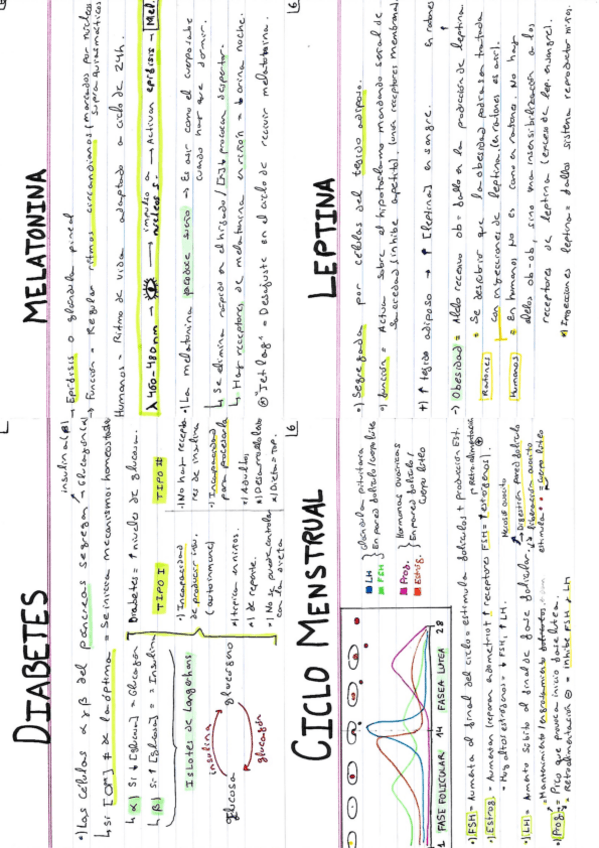 DIABETES
•) Las células α y β del páncreas segregan
insulina (β)
Glucagón (α)
↳ Si [Gluc] ≠ de la óptima = se inicia mecanismos homeostasis
↳ α) Si ↓ [glucosa] = Glucagón
↳ β) Si ↑ [Glucosa] = Insulina
Diabetes = ↑ niveles de glucosa.
Islotes de Langerhans
insulina
Glucosa
glucógeno
glucagón
TIPO I
•) Incapacidad
de producir ins.
(autoinmune)
•) típica en niños.
•) de repente.
•) No se puede controlar
con la dieta
TIPO II
•) No hay recepto
res de insulina
•) Incapacidad
para procesarla
•) Adultos
•) Desarrollo lato
•) Dieta = TOP.
MELATONINA
→ Epífisis o glándula pineal
→ Función = Regular ritmos circandianos (marcados por núcleos
supraquiasmáticos
Humanos = Ritmo de vida adaptado a ciclo de 24h.
λ 460-480nm → → impulso a
núcleo s. → Activan epífisis → Mel.
•) La melatonina produce sueño → Es así como el cuerpo sabe
cuando hay que dormir.
↳ Se elimina rápido en el hígado / [M]↓ provocan despertar.
↳ Hay receptores de melatonina en riñón = ↓ orina noche.
"Jet lag" = Desajuste en el ciclo de recibir melatonina.
CICLO MENSTRUAL
LH
FSH
Glándula pituitaria
En pared folículo/cuerpo lúteo
Prog.
Estróg.
Hormonas ováricas
En pared folículo/
cuerpo lúteo
1 FASE FOLICULAR 14 FASEA LUTEA 28
•) FSH = Aumenta al final del ciclo = estimula folículos + producción Est.
•) Estrog. = Aumentan (reparan endometrio + ↑ receptores FSH = ↑ estrógenos).
↑ Retroalimentación ⊕
= Muy altos estrógenos = ↓ FSH, ↑ LH.
•) LH = Aumento súbito al final de fase folicular
→ Digestión pared folículo
→ liberación ovocito
estimula • cuerpo lúteo
•) Prog. = Pico que provoca inicio fase lútea.
= Retroalimentación ⊖ = Inhibe FSH y LH
LEPTINA
•) Segregada por células del tejido adiposo.
•) función = Actúa sobre el hipotálamo mandando señal de
saciedad (inhibe apetito). (unen receptores membrana).
+) ↑ tejido adiposo → ↑ [leptina] en sangre.
en ratones
→ Obesidad = Alelo recesivo ob = fallo en la producción de leptina
Ratones = Se descubrió que la obesidad podía ser tratada
con inyecciones de leptina (en ratones es así).
Humanos = En humanos no es como en ratones. No hay
alelos ob-ob, sino una insensibilización a los
receptores de leptina (exceso de lep. en sangre).
•) Inyecciones leptina = fallos sistema reproductor niños.